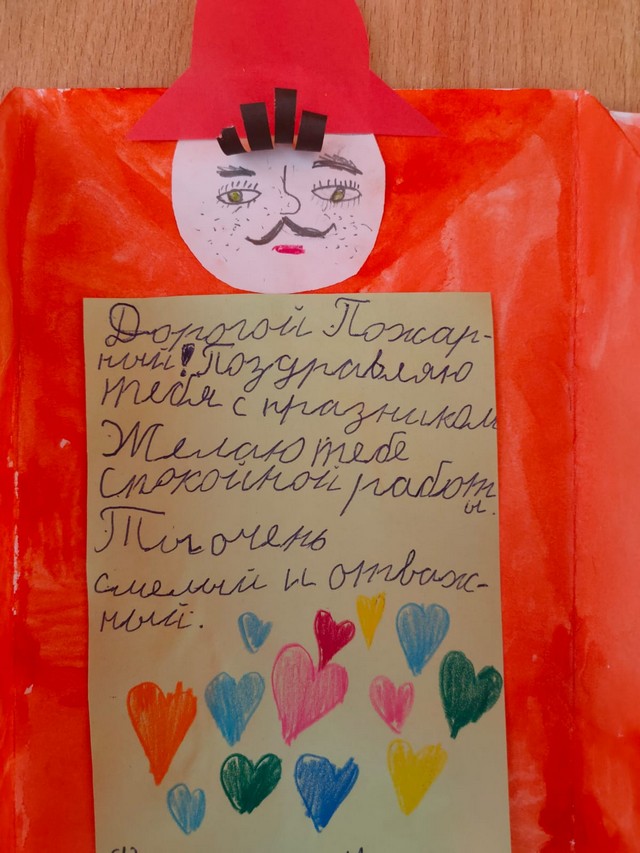 Дорогой Пожар-
ный! Поздравляю
тебя с празником
Желаю тебе
спокойной работ
ы.
Ты очень
смелый и отваж-
ный.